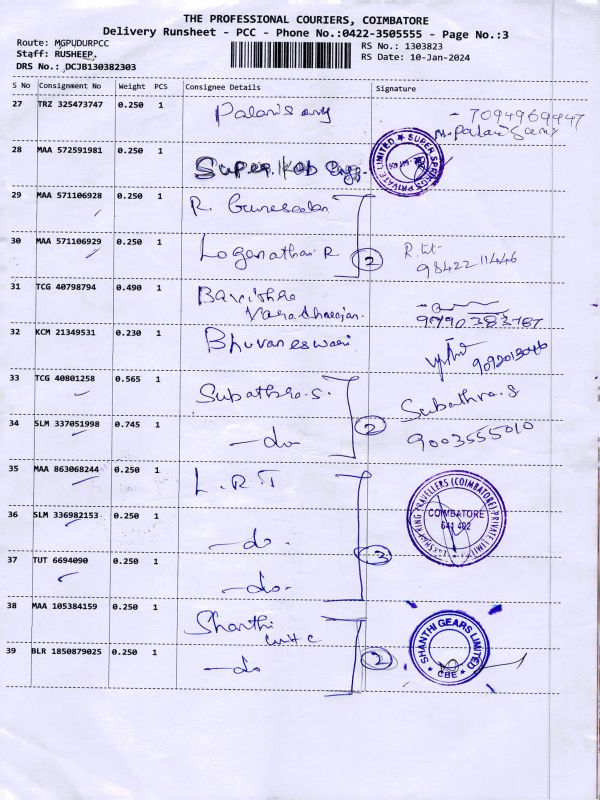 THE PROFESSIONAL COURIERS, COIMBATORE
Delivery Runsheet - PCC - Phone No.:0422-3505555 - Page No.:3
Route: MGPUDURPCC
RS No.: 1303823
Staff: RUSHEEP.
RS Date: 10-Jan-2024
DRS No.: DCJB130382303
S No Consignment No Weight PCS Consignee Details Signature
27 TRZ 325473747 0.250 1 Palanisamy 7094969447
M. Palanisamy
28 MAA 572591981 0.250 1 Super SUPER SPRINGS PRIVATE LIMITED
29 MAA 571106928 0.250 1 R. Gunaseelan
30 MAA 571106929 0.250 1 Loganathan R 2 98422 11446
31 TCG 40798794 0.490 1 Varadharajan.
32 KCM 21349531 0.230 1 Bhuvaneswari
33 TCG 40801258 0.565 1 Subathra.S. Subathra.S
34 SLM 337051998 0.745 1 -do- 2 9003555010
35 MAA 863068244 0.250 1 L.R.T
36 SLM 336982153 0.250 1 -do- COIMBATORE
37 TUT 6694090 0.250 1 -do- 3
38 MAA 105384159 0.250 1 Shanthi SHANTHI GEARS LIMITED
39 BLR 1850879025 0.250 1 -do 2 CBE